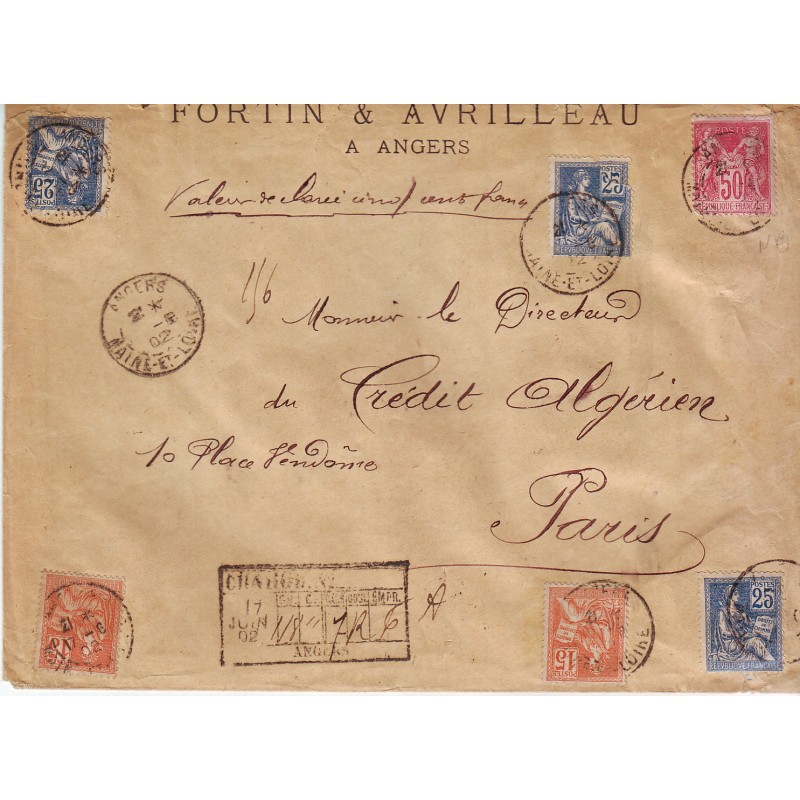 FORTIN & AVRILLEAU
A ANGERS
Valeur déclarée cinq cents francs
25
POSTES
25
REPUBLIQUE FRANÇAISE
POSTE
50
REPUBLIQUE FRANÇAISE
ANGERS
02
MAINE-ET-LOIRE
MAINE-ET-LOIRE
Monsieur le Directeur
du Crédit Algérien
10 Place Vendôme
Paris
CHARGE
17
JUIN
02
ANGERS
15
POSTES
POSTES
25
REPUBLIQUE FRANÇAISE